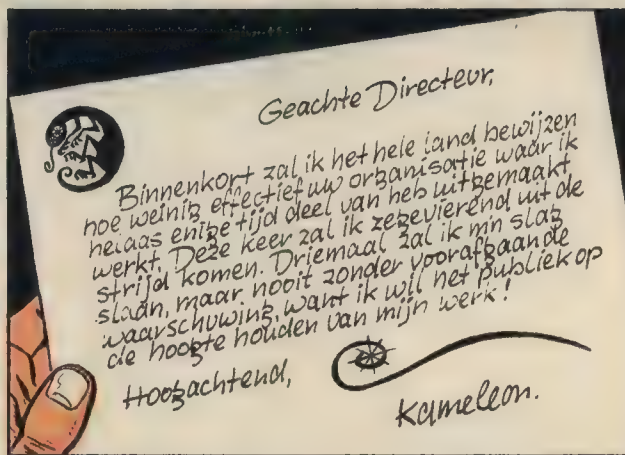 Geachte Directeur,
Binnenkort zal ik het hele land bewijzen
hoe weinig effectief uw organisatie waar ik
helaas enige tijd deel van heb uitgemaakt,
werkt. Deze keer zal ik zegevierend uit de
strijd komen. Driemaal zal ik m'n slag
slaan, maar nooit zonder voorafgaande
waarschuwing, want ik wil het publiek op
de hoogte houden van mijn werk!
Hoogachtend,
Kameleon.